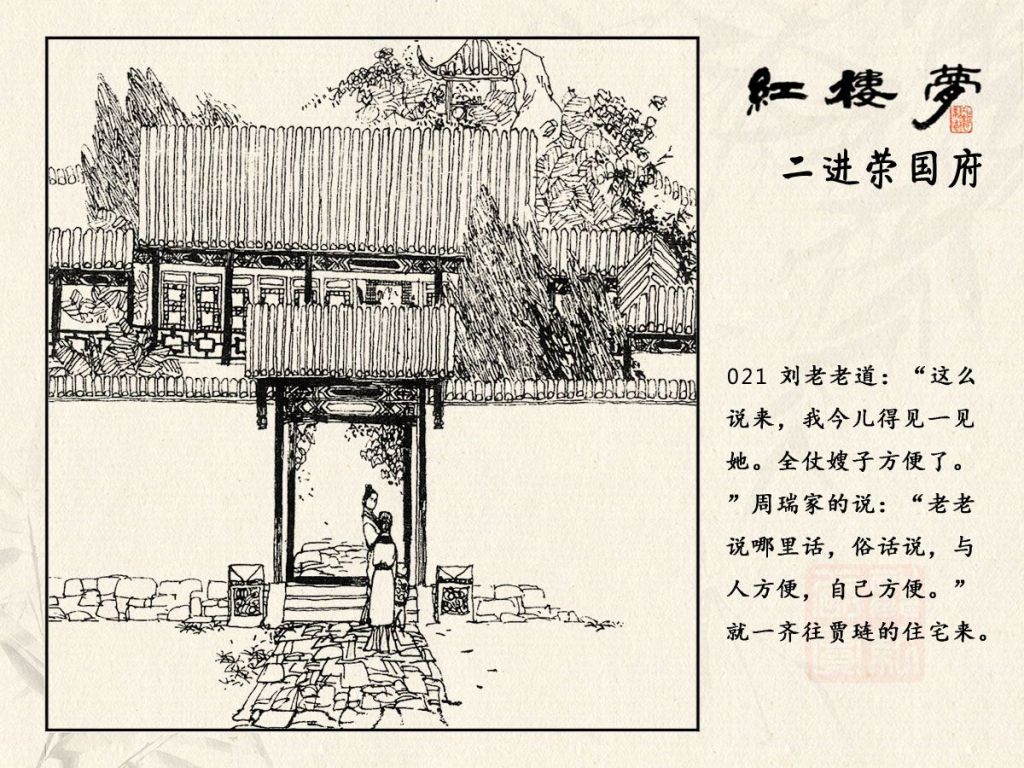 红楼梦
二进荣国府
021 刘老老道：“这么
说来，我今儿得见一见
她。全仗嫂子方便了。
”周瑞家的说：“老老
说哪里话，俗话说，与
人方便，自己方便。”
就一齐往贾琏的住宅来。